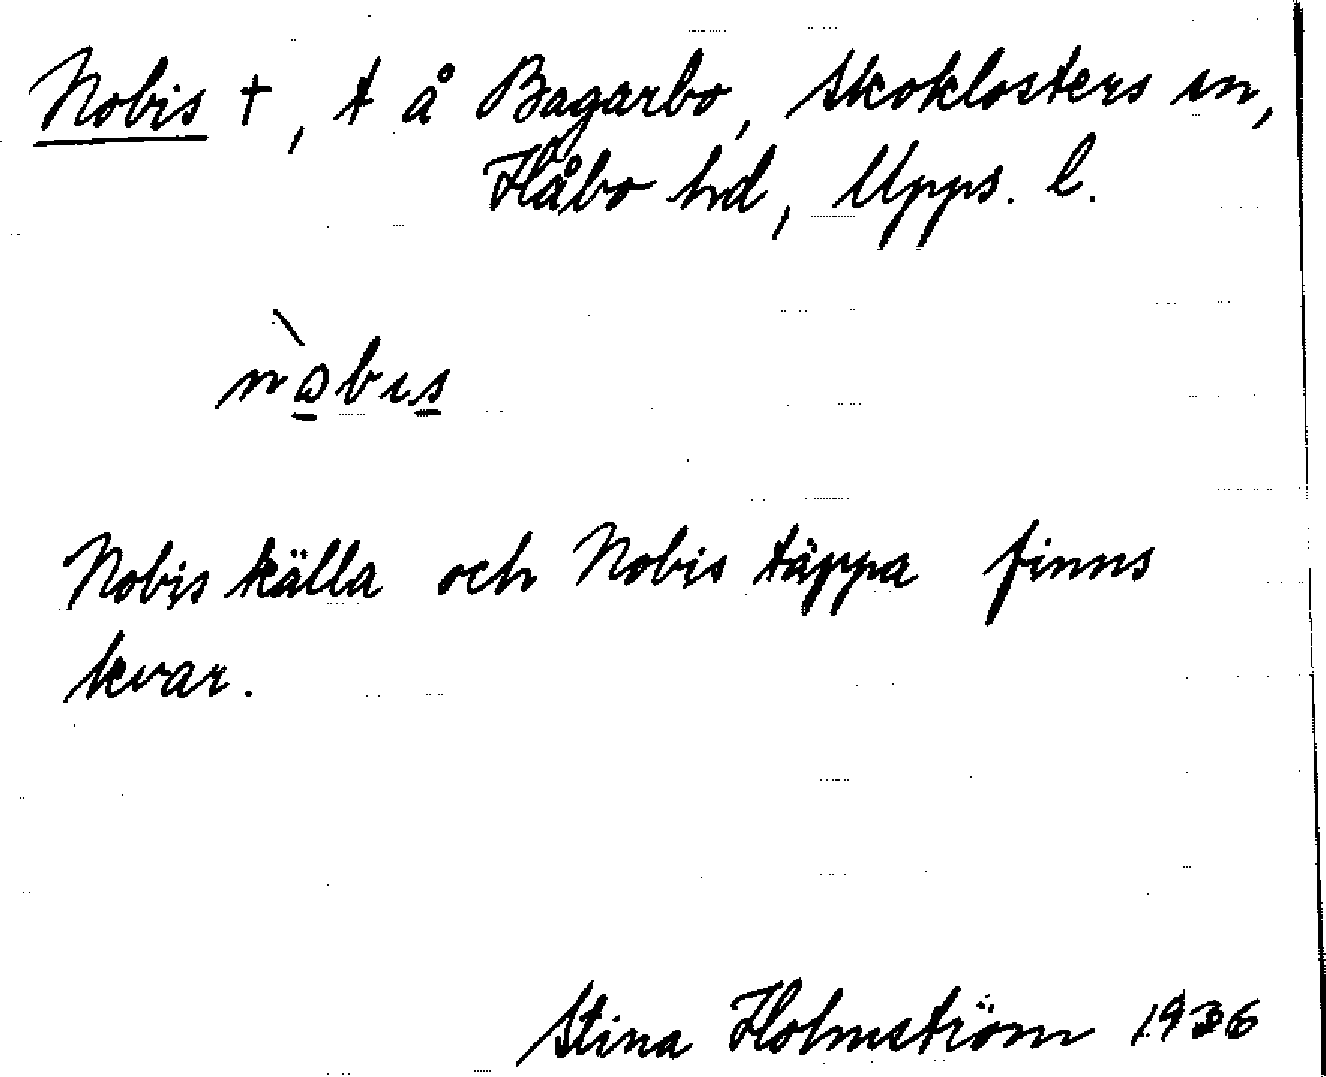 Nobis †, t å Bagarbo, Skoklosters sn,
Håbo hd, Upps. l.
nàbıs
Nobis källa och Nobis täppa finns
kvar.
Stina Holmström 1936